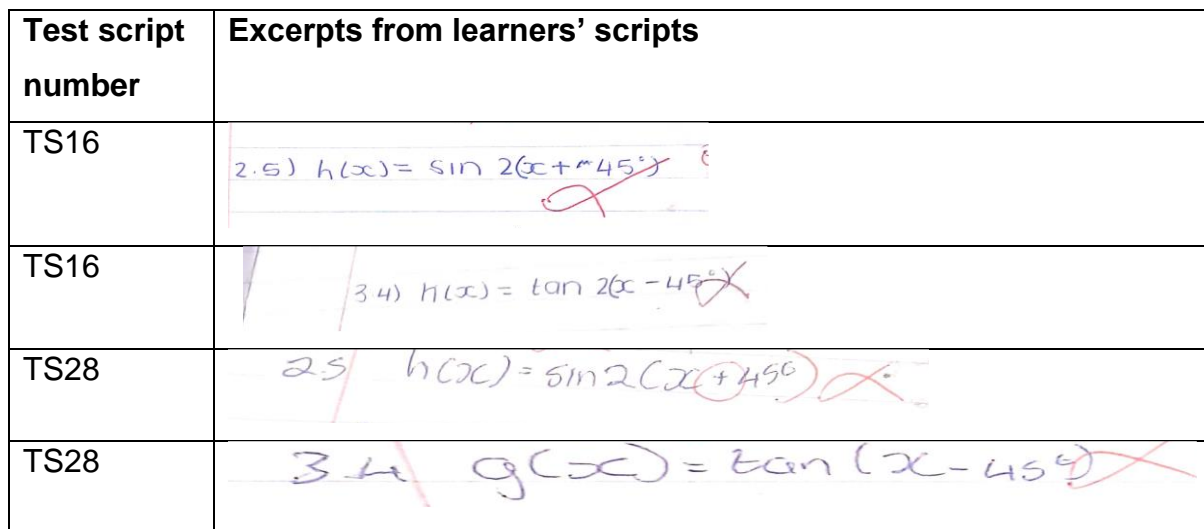 Test script number
Excerpts from learners’ scripts
TS16
2.5) h(x) = sin 2(x + 45°)
TS16
3.4) h(x) = tan 2(x - 45°)
TS28
2.5 h(x) = sin 2(x + 45°)
TS28
3.4 g(x) = tan (x - 45°)